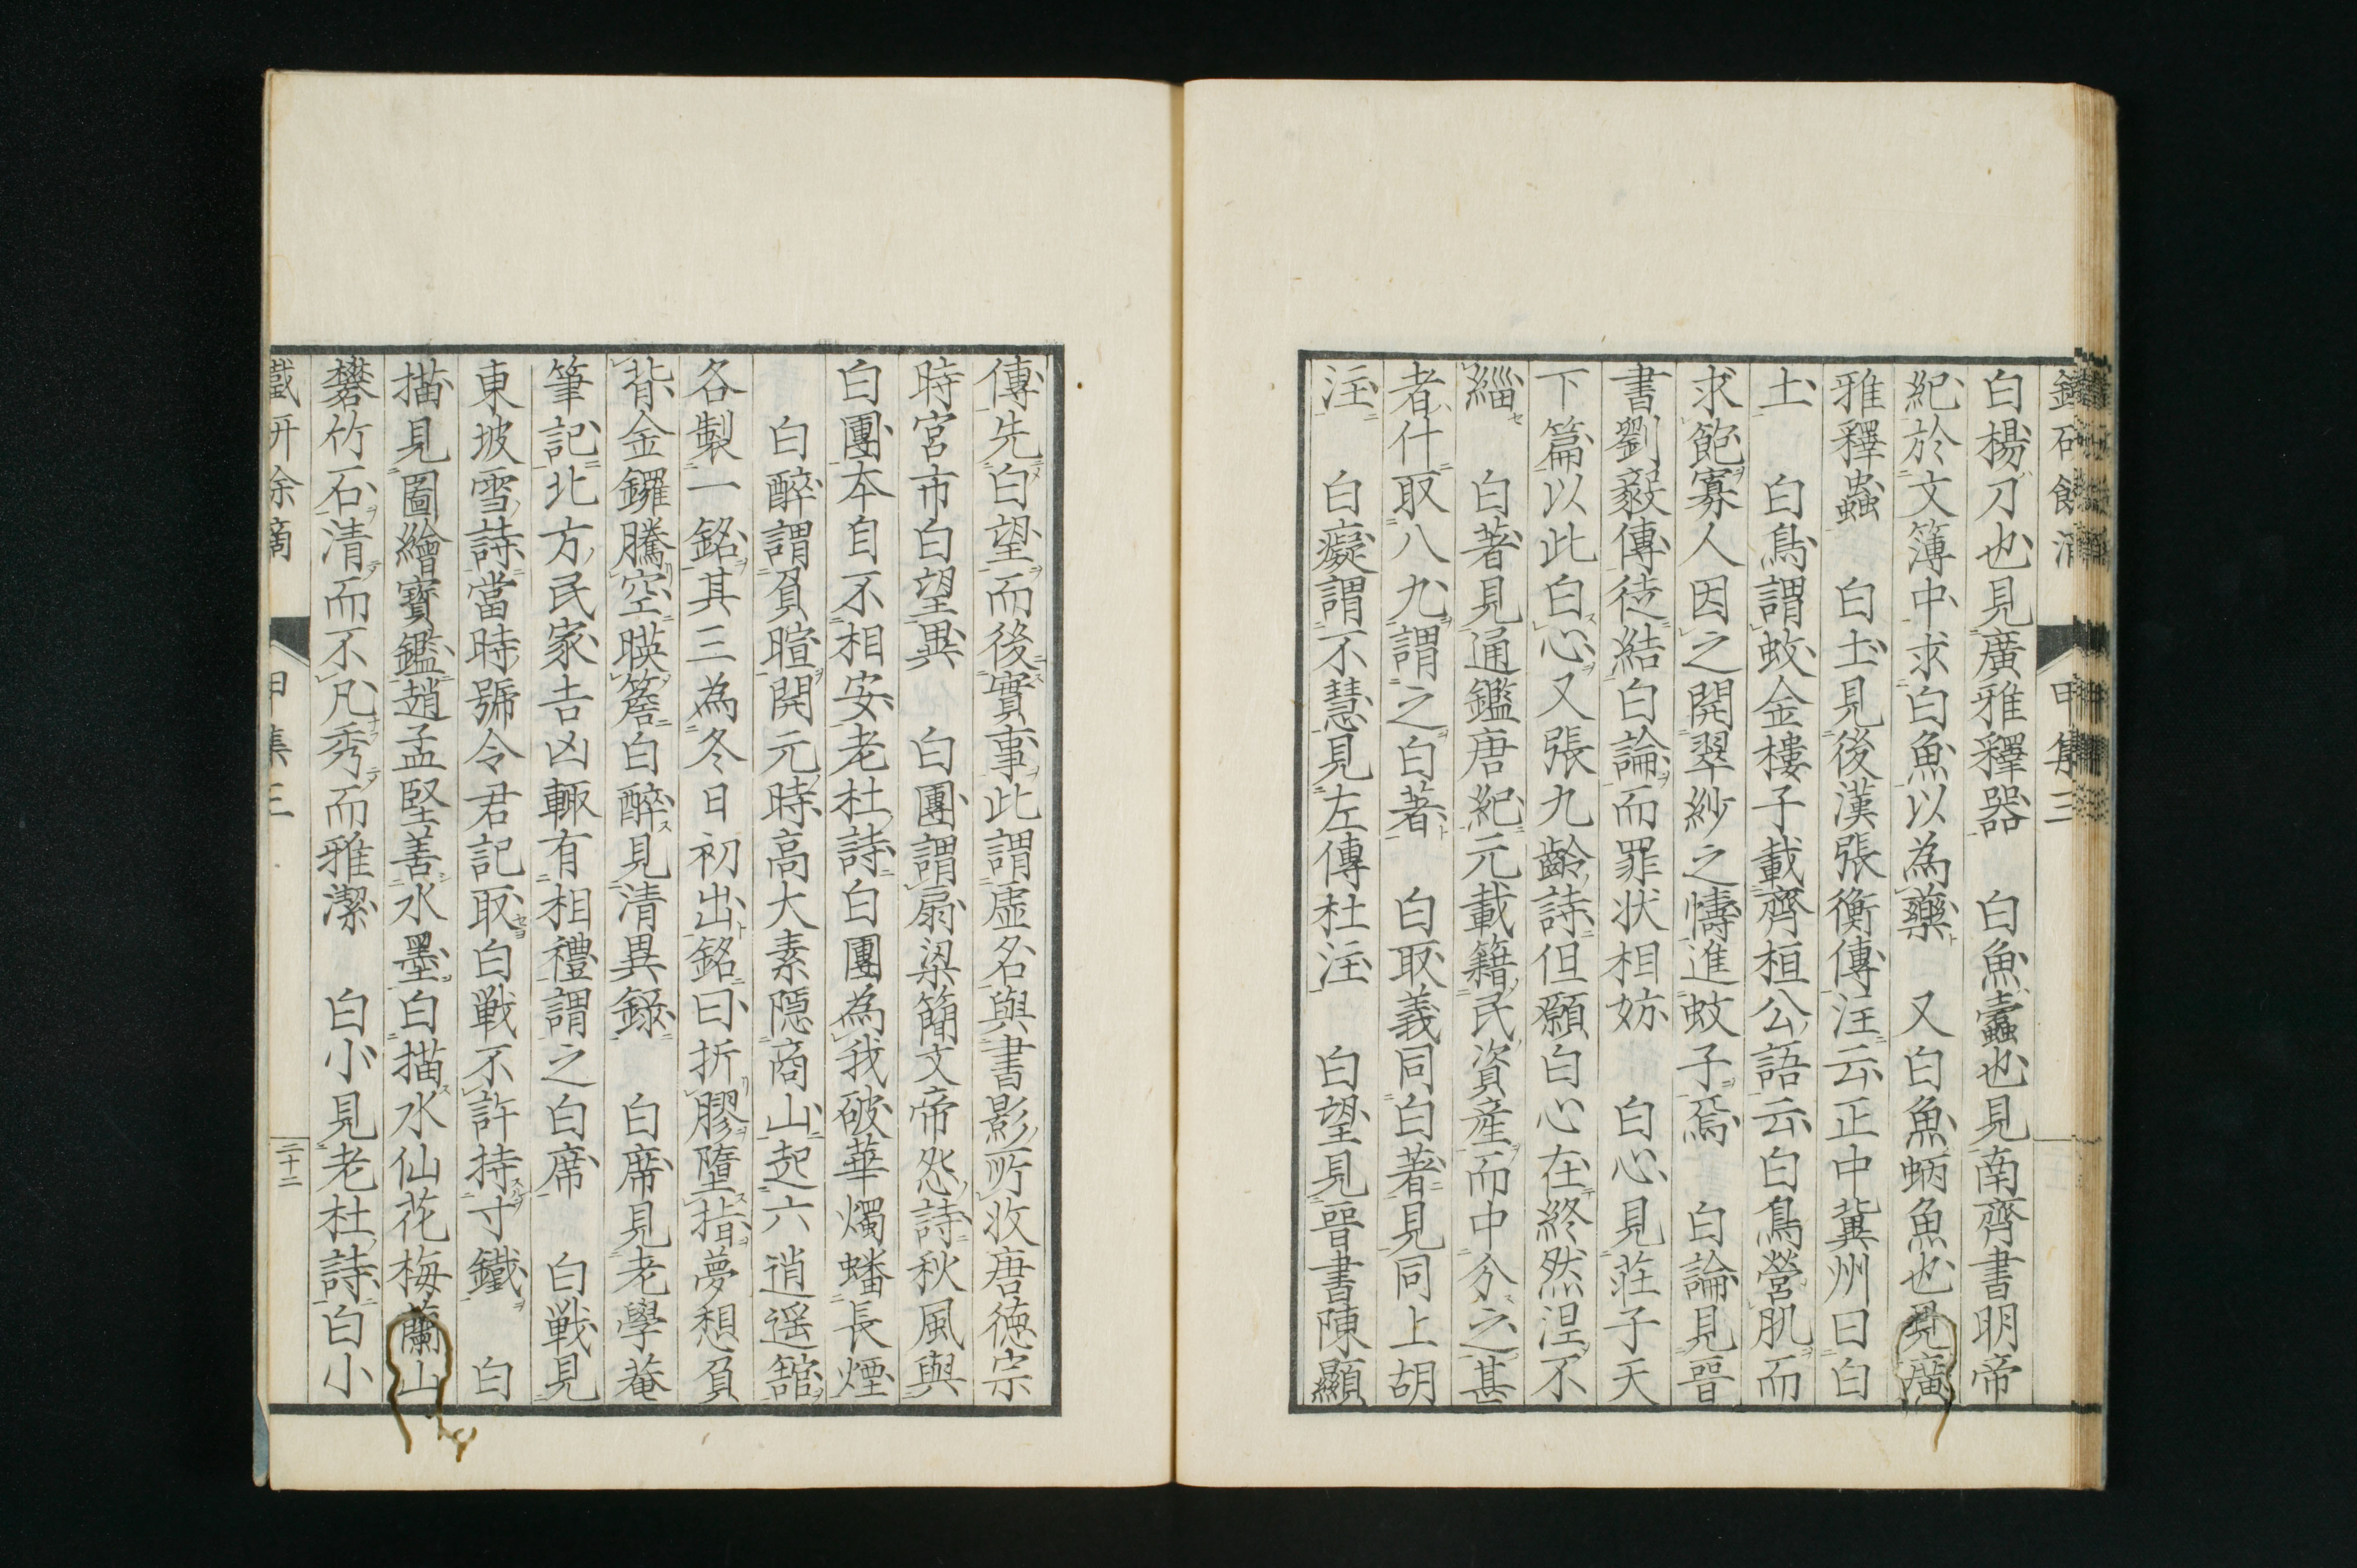 甲集三
白楊刀也見廣雅釋器　白魚蠧也見南齊書明帝
紀於文簿中求白魚以為藥　又白魚蛃魚也見廣
雅釋蟲　白土見後漢張衡傳注云正中冀州曰白
土　白鳥謂蚊金樓子載齊桓公語云白鳥營肌而
求飽寡人因之開翠紗之幬進蚊子焉　白論見晉
書劉毅傳徒結白論而罪状相妨　白心見莊子天
下篇以此白心又張九齡詩但願白心在終然涅不
緇　白著見通鑑唐紀元載籍民資産而中分之甚
者什取八九謂之白著　白取義同白著見同上胡
注　白癡謂不慧見左傳杜注　白望見晉書陳顯
傳先白望而後實事此謂虛名與書影所收唐徳宗
時宮市白望異　白團謂扇梁簡文帝怨詩秋風與
白團本自不相安老杜詩白團為我破華燭蟠長煙
白醉謂負暄開元時高大素隱商山起六逍遥舘
各製一銘其三為冬日初出銘曰折膠墮指夢想負
背金鑼騰空暎簷白醉見清異錄　白席見老學菴
筆記北方民家吉凶輒有相禮謂之白席　白戰見
東坡雪詩當時號令君記取白戦不許持寸鐵　白
描見圖繪寶鑑趙孟堅善水墨白描水仙花梅蘭山
礬竹石清而不凡秀而雅潔　白小見老杜詩白小
甲集三
二十二